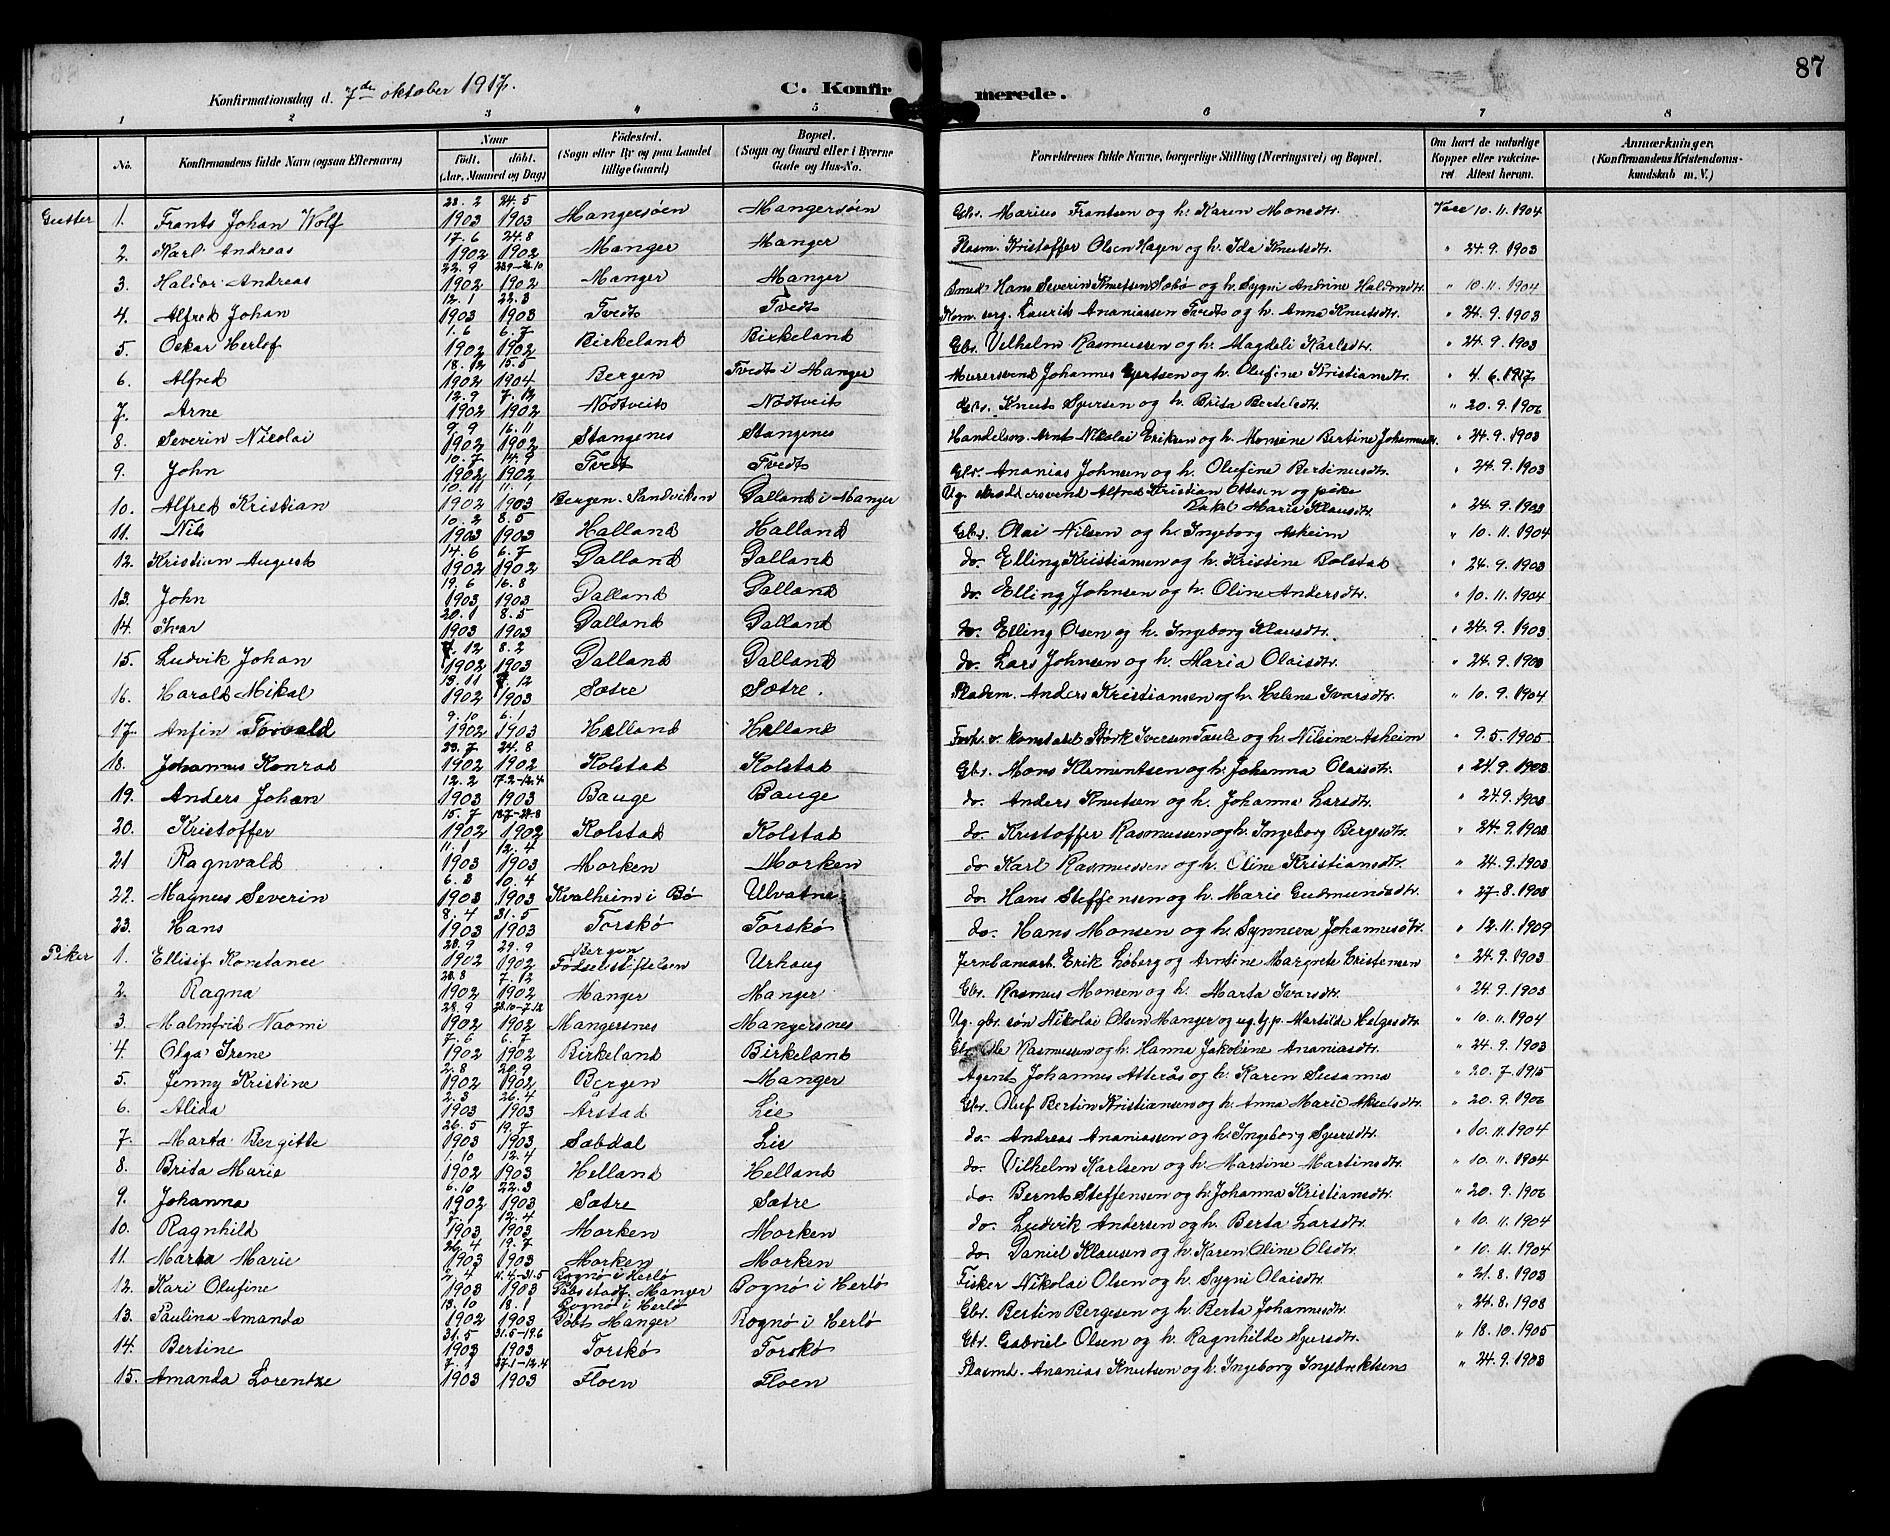 87
Konfirmationsdag d. 7de oktober 1917.
C. Konfirmerede.
1 2 3 4 5 6 7 8
No. Konfirmandens fulde Navn (ogsaa Efternavn) Naar födt. döbt. (Aar, Maaned og Dag) Födested. (Sogn eller By og paa Landet tillige Gaard) Bopæl. (Sogn og Gaard eller i Byerne Gade og Hus-No. Forældrenes fulde Navne, borgerlige Stilling (Næringsvei) og Bopæl. Om havt de naturlige Kopper eller vaccineret Attest herom. Anmærkninger (Konfirmandens Kristendomskundskab m. V.)
Gutter 1. Frants Johan Wolf 23. 2 1903 24. 5 1903 Mangersöen Mangersöen Gbr. Marius Frantsen og h. Karen Monsdtr. Vacc 10. 11. 1904
2. Karl Andreas 17. 6 1902 24. 8 1902 Manger Manger Plasm. Kristoffer Olsen Hagen og h. Ida Knutsdtr. " 24. 9. 1903
3. Haldor Andreas 22. 9 1902 1902 Manger Manger Smed Hans Severin Knutsen Sæbö og h. Sygni Andrine Haldorsdtr. " 10. 11. 1904
4. Alfred Johan 12. 1 1903 22. 3 1903 Tvedt Tvedt Laurits Ananiassen Tvedt og h. Anna Knutsdtr. " 24. 9. 1903
5. Oskar Herlof 1. 6 1902 6. 7 1902 Birkeland Birkeland Gbr. Vilhelm Rasmussen og h. Magdeli Karlsdtr. " 24. 9. 1903
6. Alfred 18. 12 1902 15. 5 1904 Bergen Tvedt i Manger Murersvend Johannes Gjertsen og h. Olufine Kristiansdtr. " 4. 6. 1917
7. Arne 12. 9 1902 7. 12 1902 Nödtveit Nödtveit Gbr. Knut Sjursen og h. Brita Bertelsdtr. " 20. 9. 1906
8. Severin Nicolai 9. 9 1902 16. 11 1902 Stangenes Stangenes Handelsm. Arnt Nikolai Eriksen og h. Monsine Bertine Johannesdtr. " 24. 9. 1903
9. John 10. 7 1902 14. 9 1902 Tvedt Tvedt Gbr. Ananias Johnsen og h. Olufine Bertinusdtr. " 24. 9. 1903
10. Alfred Kristian 10. 11 1902 11. 1 1903 Bergen. Sandviken Dalland i Manger Ug. skræddersvend Alfred Kristian Ottesen og pike
Rakel Marie Klausdtr. " 24. 9. 1903
11. Nils 10. 2 1903 8. 5 1903 Halland Halland Gbr. Olai Nilsen og h. Ingeborg Askeim " 10. 11. 1904
12. Kristian August 14. 6 1902 6. 7 1902 Dalland Dalland do. Elling Kristiansen og h. Kristine Bolstad " 24. 9. 1903
13. John 19. 6 1903 16. 8 1903 Dalland Dalland do. Elling Johnsen og h. Oline Andersdtr. " 10. 11. 1904
14. Ivar 20. 1 1903 8. 5 1903 Dalland Dalland do. Elling Olsen og h. Ingeborg Klausdtr. " 24. 9. 1903
15. Ludvik Johan 7. 12 1902 8. 2 1903 Dalland Dalland do. Lars Johnsen og h. Maria Olaisdtr. " 24. 9. 1903
16. Harald Mikal 13. 11 1902 12 1903 Sætre Sætre. Pladsm. Anders Kristiansen og h. Helene Ivarsdtr. " 10. 9. 1904
17. Anfin Torvald 9. 10 1902 6. 1 1903 Helland Helland Störk Iversen og h. Nilsine Askeim " 9. 5. 1905
18. Johannes Konrad 23. 7 1902 24. 8 1902 Kolstad Kolstad Gbr. Mons Klementsen og h. Johanna Olaisdtr. " 24. 9. 1903
19. Anders Johan 12. 2 1903 17. 2 - 12. 4 1903 Bauge Bauge do. Anders Knutsen og h. Johanna Larsdtr. " 24. 9. 1903
20. Kristoffer 15. 7 1902 18.7-24.8 1902 Kolstad Kolstad do. Kristoffer Rasmussen og h. Ingeborg Bergesdtr. " 24. 9. 1903
21 Ragnvald 11. 1 1903 12. 4 1903 Morken Morken do Karl Rasmussen og h. Oline Kristiansdtr. " 24. 9. 1903
22. Magnus Severin 6. 3 1903 10. 4 1903 Kvalheim i Bø Ulvatne do. Hans Steffensen og h. Marie Gudmundsdtr. " 27. 8. 1903
23. Hans 8. 4 1903 31. 5 1903 Torskø Torskø do. Hans Monsen og h. Synneva Johannesdtr. " 12. 11. 1909
Piker 1. Ellisif Konstance 23. 9 1902 29. 9 1902 Bergen Fødselsstiftelsen Urhaug Jernbanearb. Erik Löberg og Arntine Margrete Kristensen " 24. 9. 1903
2. Ragna 23. 8 1902 7. 12 1902 Manger Manger Gbr. Rasmus Monsen og h. Marta Ivarsdtr. " 24. 9. 1903
3. Malmfrid Naomi 23. 9 1902 1902 Mangersnes Mangersnes Ug. gbr. søn Nikolai Olsen Manger og ug. tj. p. Martilde Helgesdtr. " 10. 11. 1904
4. Olga Irene 7. 6 1902 6. 7 1902 Birkeland Birkeland Gbr. Ole Rasmussen og h. Hanna Jakobine Ananiasdtr. " 24. 9. 1903
5. Jenny Kristine 2. 8 1902 20. 9 1902 Bergen Manger Agent Johannes Atterås og h. Karen Susanna " 20. 7. 1915
6. Alida 2. 3 1903 26. 4 1903 Årstad Lie Gbr. Oluf Bertin Kristiansen og h. Anna Marie Akselsdtr. " 20. 9. 1906
7. Marta Bergitte 26. 5 1903 19. 7 1903 Sæbdal Lie do. Andreas Ananiassen og h. Ingeborg Sjursdtr. " 10. 11. 1904
8. Brita Marie 1. 10 1902 12. 4 1903 Helland Helland do. Vilhelm Karlsen og h. Martine Martinsdtr. " 10. 11. 1904
9. Johanna 6. 10 1902 22. 3 1903 Sætre Sætre do. Bernt Steffensen og h. Johanna Kristiansdtr. " 20. 9. 1906
10. Ragnhild 1903 12. 4 1903 Morken Morken do. Ludvik Andersen og h. Berta Larsdtr. " 10. 11. 1904
11. Marta Marie 26. 4 1903 19. 7 1903 Morken Morken do. Daniel Klausen og h. Karen Oline Olsdtr. " 10. 11. 1904
12. Kari Olufine 1903 1903 Rognø i Herlø Manger Rognø i Herlø Fisker Nikolai Olsen og h. Sygni Olaisdtr. " 21. 8. 1903
13. Paulina Amanda 13. 10 1902 18. 1 1903 Rognø i Herlø Döbt Manger Rognø i Herlø Gbr. Bertin Bergesen og h. Berta Johannesdtr. " 24. 8. 1903
14. Bertine 31. 5 1903 31.5-19.6 1903 Torskø Torskø Gbr. Gabriel Olsen og h. Ragnhilde Sjursdtr. " 18. 10. 1905
15. Amanda Lorentze 7. 1 1903 27.1-12.4 1903 Floen Floen Plasmd. Ananias Knutsen og h. Ingeborg Ingebriktsens " 24. 9. 1903